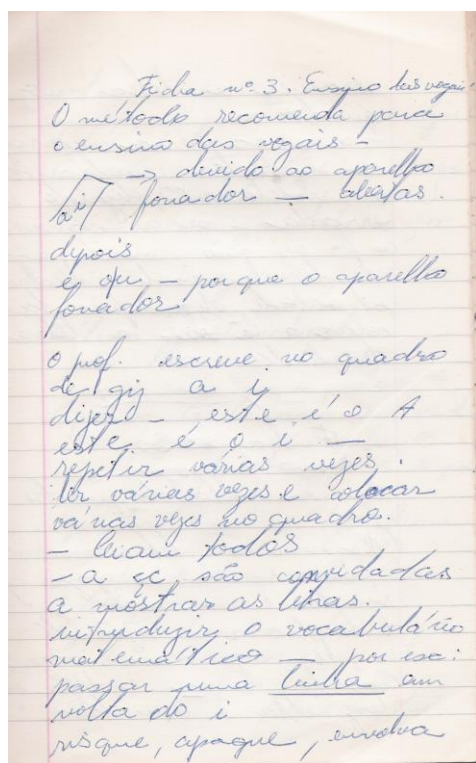 Ficha nº 3. Ensino das vogais
O método recomenda para
o ensino das vogais –
→ devido ao aparelho
a i fonador – abertas.
depois
e o u – porque o aparelho
fonador
o prof. escreve no quadro
de giz a i
dizer – este é o A
este é o i –
repetir várias vezes.
ler várias vezes e colocar
várias vezes no quadro.
– leiam todos
– a são convidadas
a mostrar as letras.
introduzir o vocabulário
matemático – por exe:
passar uma linha em
volta do i
risque, apague, envolva